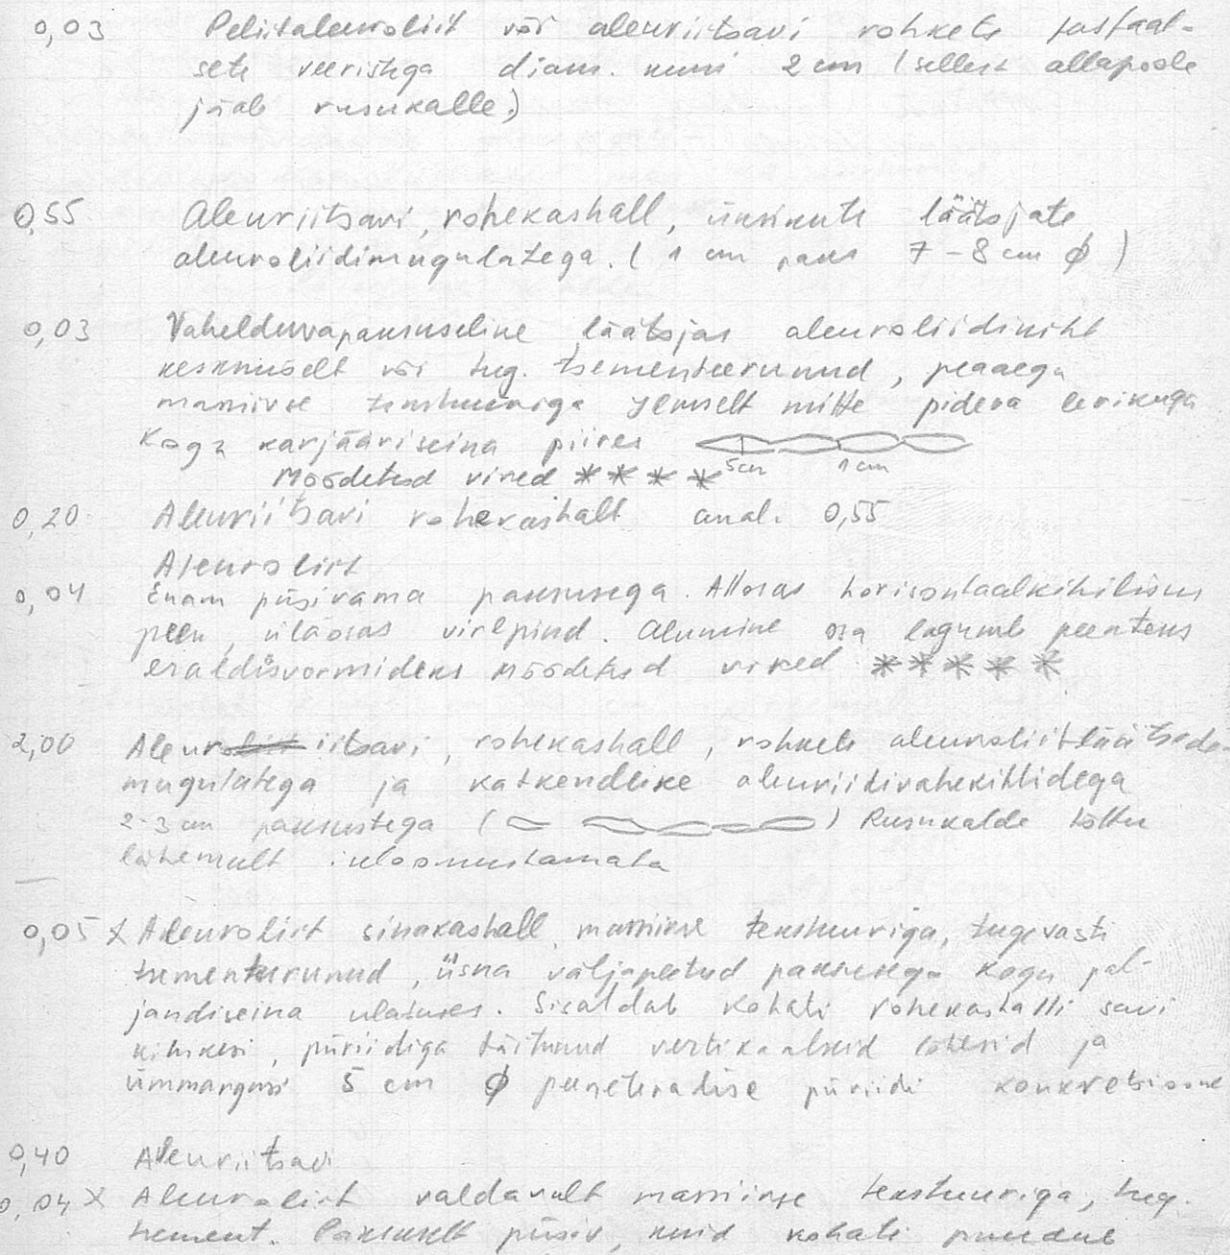 0,03 Peliitaleuroliit või aleuriitsavi rohkete fosfaat-
sete veeristega diam. kuni 2 cm (sellest allapoole
jääb rusukalle.)
0,55 Aleuriitsavi, rohekashall, üksikute läätsjate
aleuroliidimugulatega. (1 cm paks 7-8 cm ϕ)
0,03 Vahelduvapaksuseline läätsjas aleuroliidikiht
keskmiselt või tug. tsementeerunud, peaaegu
massiivse tekstuuriga mitte pideva levikuga
Kogu karjääriseina piires 5cm 1cm
Mõõdetud vired * * * *
0,20 Aleuriitsavi rohekashall anal. 0,55
Aleuroliit
0,04 Enam püsivama paksusega. Allosas horisontaalkihilisus
peen, ülaosas virepind. Alumine osa laguneb peenteks
eraldisvormideks Mõõdetud vired * * * * *
2,00 Aleuriitsavi, rohekashall, rohkete aleuroliitläätsede
mugulatega ja katkendlike aleuriidivahekihtidega
2-3 cm paksustega ( ) Rusukalde tõttu
lähemalt iseloomustamata
0,05 x Aleuroliit sinakashall massiivse tekstuuriga, tugevasti
tsementeerunud, üsna väljapeetud paksusega kogu pal-
jandiseina ulatuses. Sisaldab kohati rohekashalli savi
kihikesi, püriidiga täitunud vertikaalseid lõhesid ja
ümmargusi 5 cm ϕ peeneteralise püriidi konkretsioone
0,40 Aleuriitsavi
0,04 x Aleuroliit valdavalt massiivse tekstuuriga, tug.
tsement. Paksuselt püsiv, kuid kohati puudub